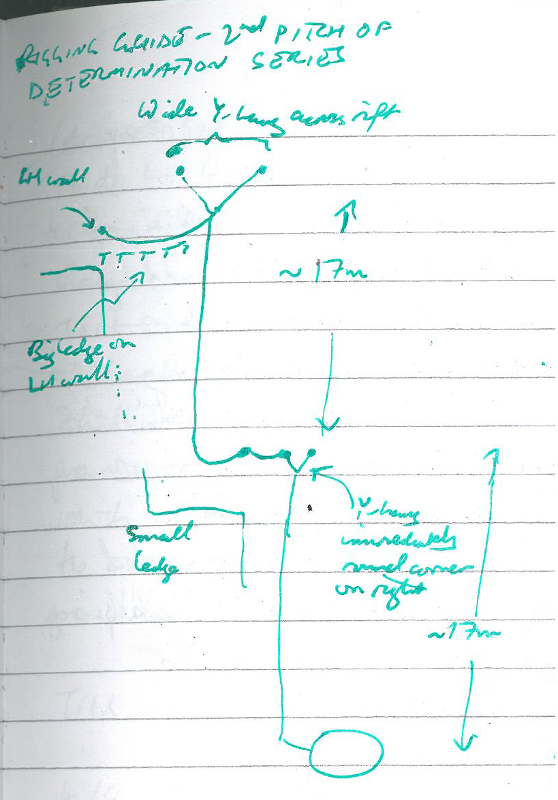 RIGGING GUIDE - 2nd PITCH OF
DETERMINATION SERIES
Wide Y-hang across rift
LH wall
~17m
Big ledge on
LH wall
Small
ledge
Y-hang
immediately
round corner
on right
~17m